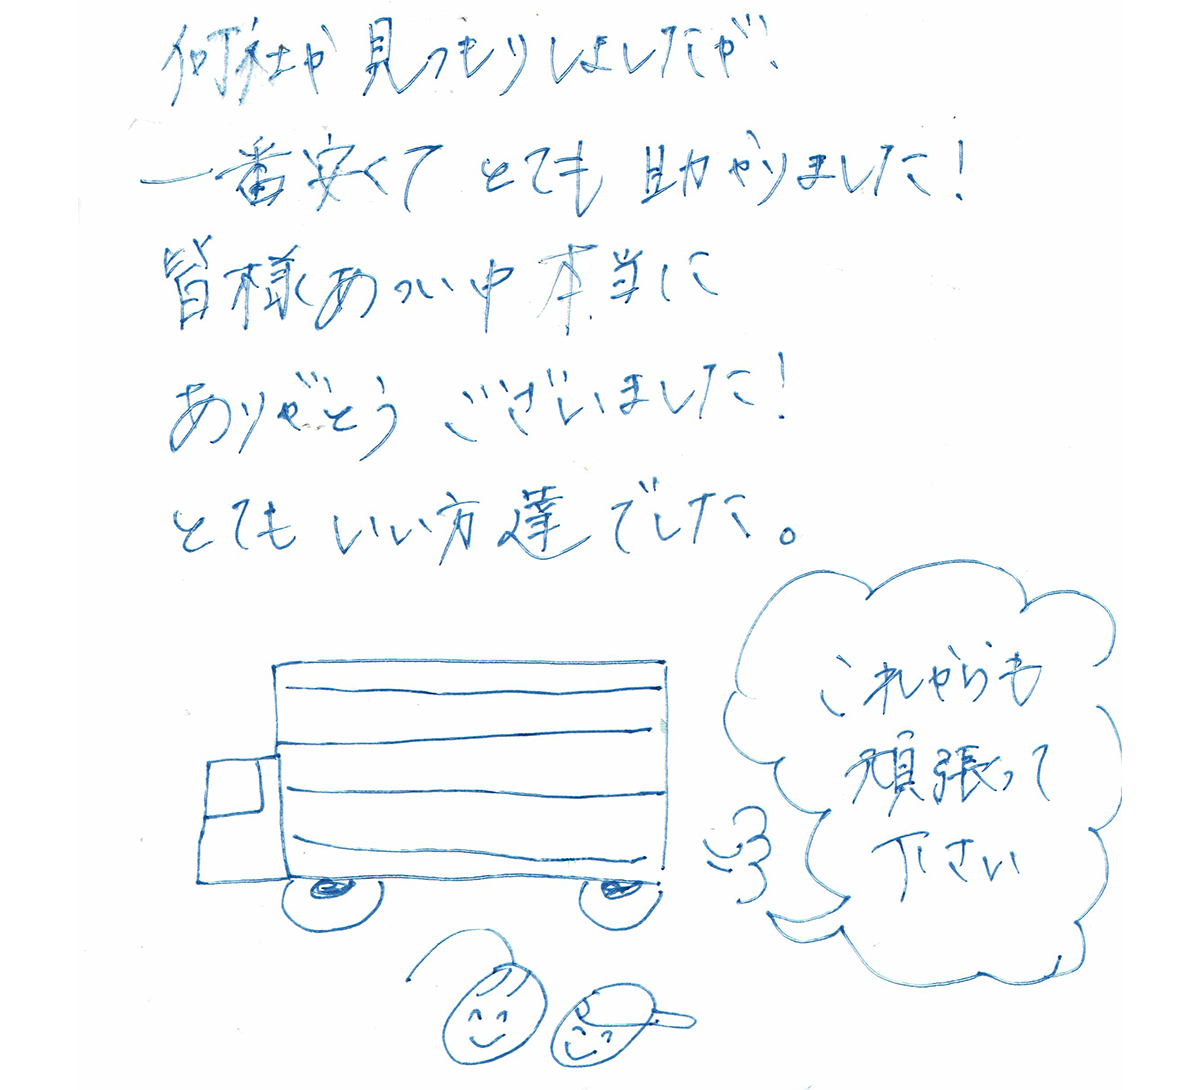 何社か見つもりしましたが、
一番安くてとても助かりました！
皆様あつい中本当に
ありがとうございました！
とてもいい方達でした。
これからも
頑張って
下さい